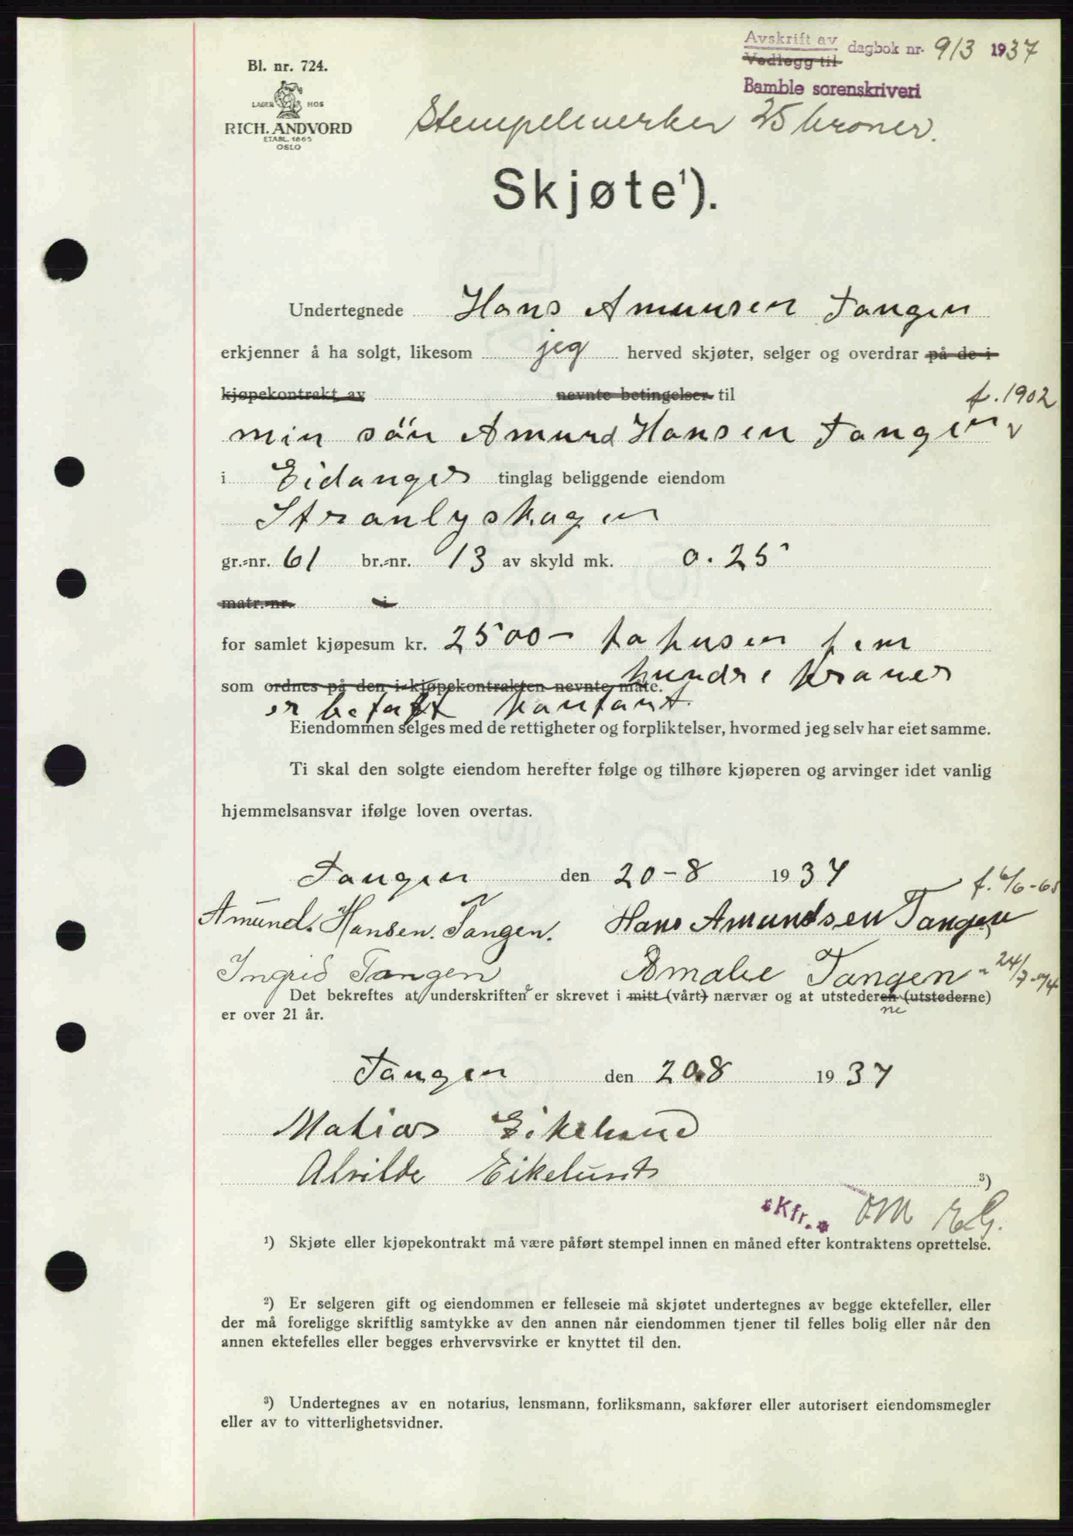 Avskrift av
Vedlegg til
dagbok nr. 913 1937
Bamble sorenskriveri
Bl. nr. 724.
LAGER HOS
RICH. ANDVORD
ETABL. 1865
OSLO
Stempelmerker 25 kroner.
Skjøte¹).
Undertegnede Hans Amunsen Tangen
erkjenner å ha solgt, likesom jeg herved skjøter, selger og overdrar på de i
kjøpekontrakt av nevnte betingelser til
f. 1902
min sön Amund Hansen Tangen
i Eidanger tinglag beliggende eiendom
Stranlyskogen
gr.-nr. 61 br.-nr. 13 av skyld mk. 0.25
matr.-nr. i
for samlet kjøpesum kr. 2500- totusen fem
hundre kroner
som ordnes på den i kjøpekontrakten nevnte måte.
er betalt kontant.
Eiendommen selges med de rettigheter og forpliktelser, hvormed jeg selv har eiet samme.
Ti skal den solgte eiendom herefter følge og tilhøre kjøperen og arvinger idet vanlig
hjemmelsansvar ifølge loven overtas.
Tangen den 20-8 1937
f. 6/6-65
Amund Hansen Tangen. Hans Amundsen Tangen
Ingrid Tangen Amalie Tangen " 24/7-74
Det bekreftes at underskriften er skrevet i mitt (vårt) nærvær og at utstederen (utstederne)
ne
er over 21 år.
Tangen den 20.8 1937
Matias Eikelund
Alvilde Eikelund
³)
*Kfr.* OM EG.
¹) Skjøte eller kjøpekontrakt må være påført stempel innen en måned efter kontraktens oprettelse.
²) Er selgeren gift og eiendommen er felleseie må skjøtet undertegnes av begge ektefeller, eller
der må foreligge skriftlig samtykke av den annen når eiendommen tjener til felles bolig eller når den
annen ektefelles eller begges erhvervsvirke er knyttet til den.
³) Undertegnes av en notarius, lensmann, forliksmann, sakfører eller autorisert eiendomsmegler
eller av to vitterlighetsvidner.